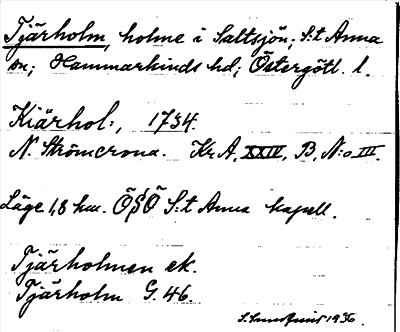 Tjärholm, holme i Saltsjön; S:t Anna
sn; Hammarkinds hd; Östergötl. l.
Kiärhol:, 1734.
N. Strömcrona. Kr A, XXIV, B, N:o III.
Läge 1,8 km. ÖSÖ S:t Anna kapell.
Tjärholmen ek.
Tjärholm G. 46.
1930